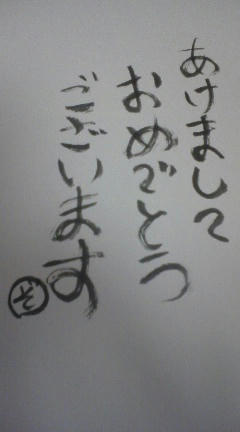 あけまして
おめでとう
ございます
そ